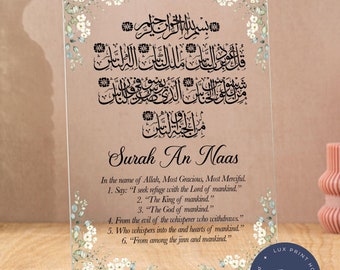 بسم الله الرحمن الرحيم
قل أعوذ برب الناس ملك الناس إله الناس
من شر الوسواس الخناس الذي يوسوس في صدور الناس
من الجنة والناس
Surah An Naas
In the name of Allah, Most Gracious, Most Merciful.
1. Say: "I seek refuge with the Lord of mankind."
2. "The King of mankind."
3. "The God of mankind."
4. "From the evil of the whisperer who withdraws."
5. "Who whispers into the and hearts of mankind."
6. "From among the jinn and mankind."
LUX PRINT H